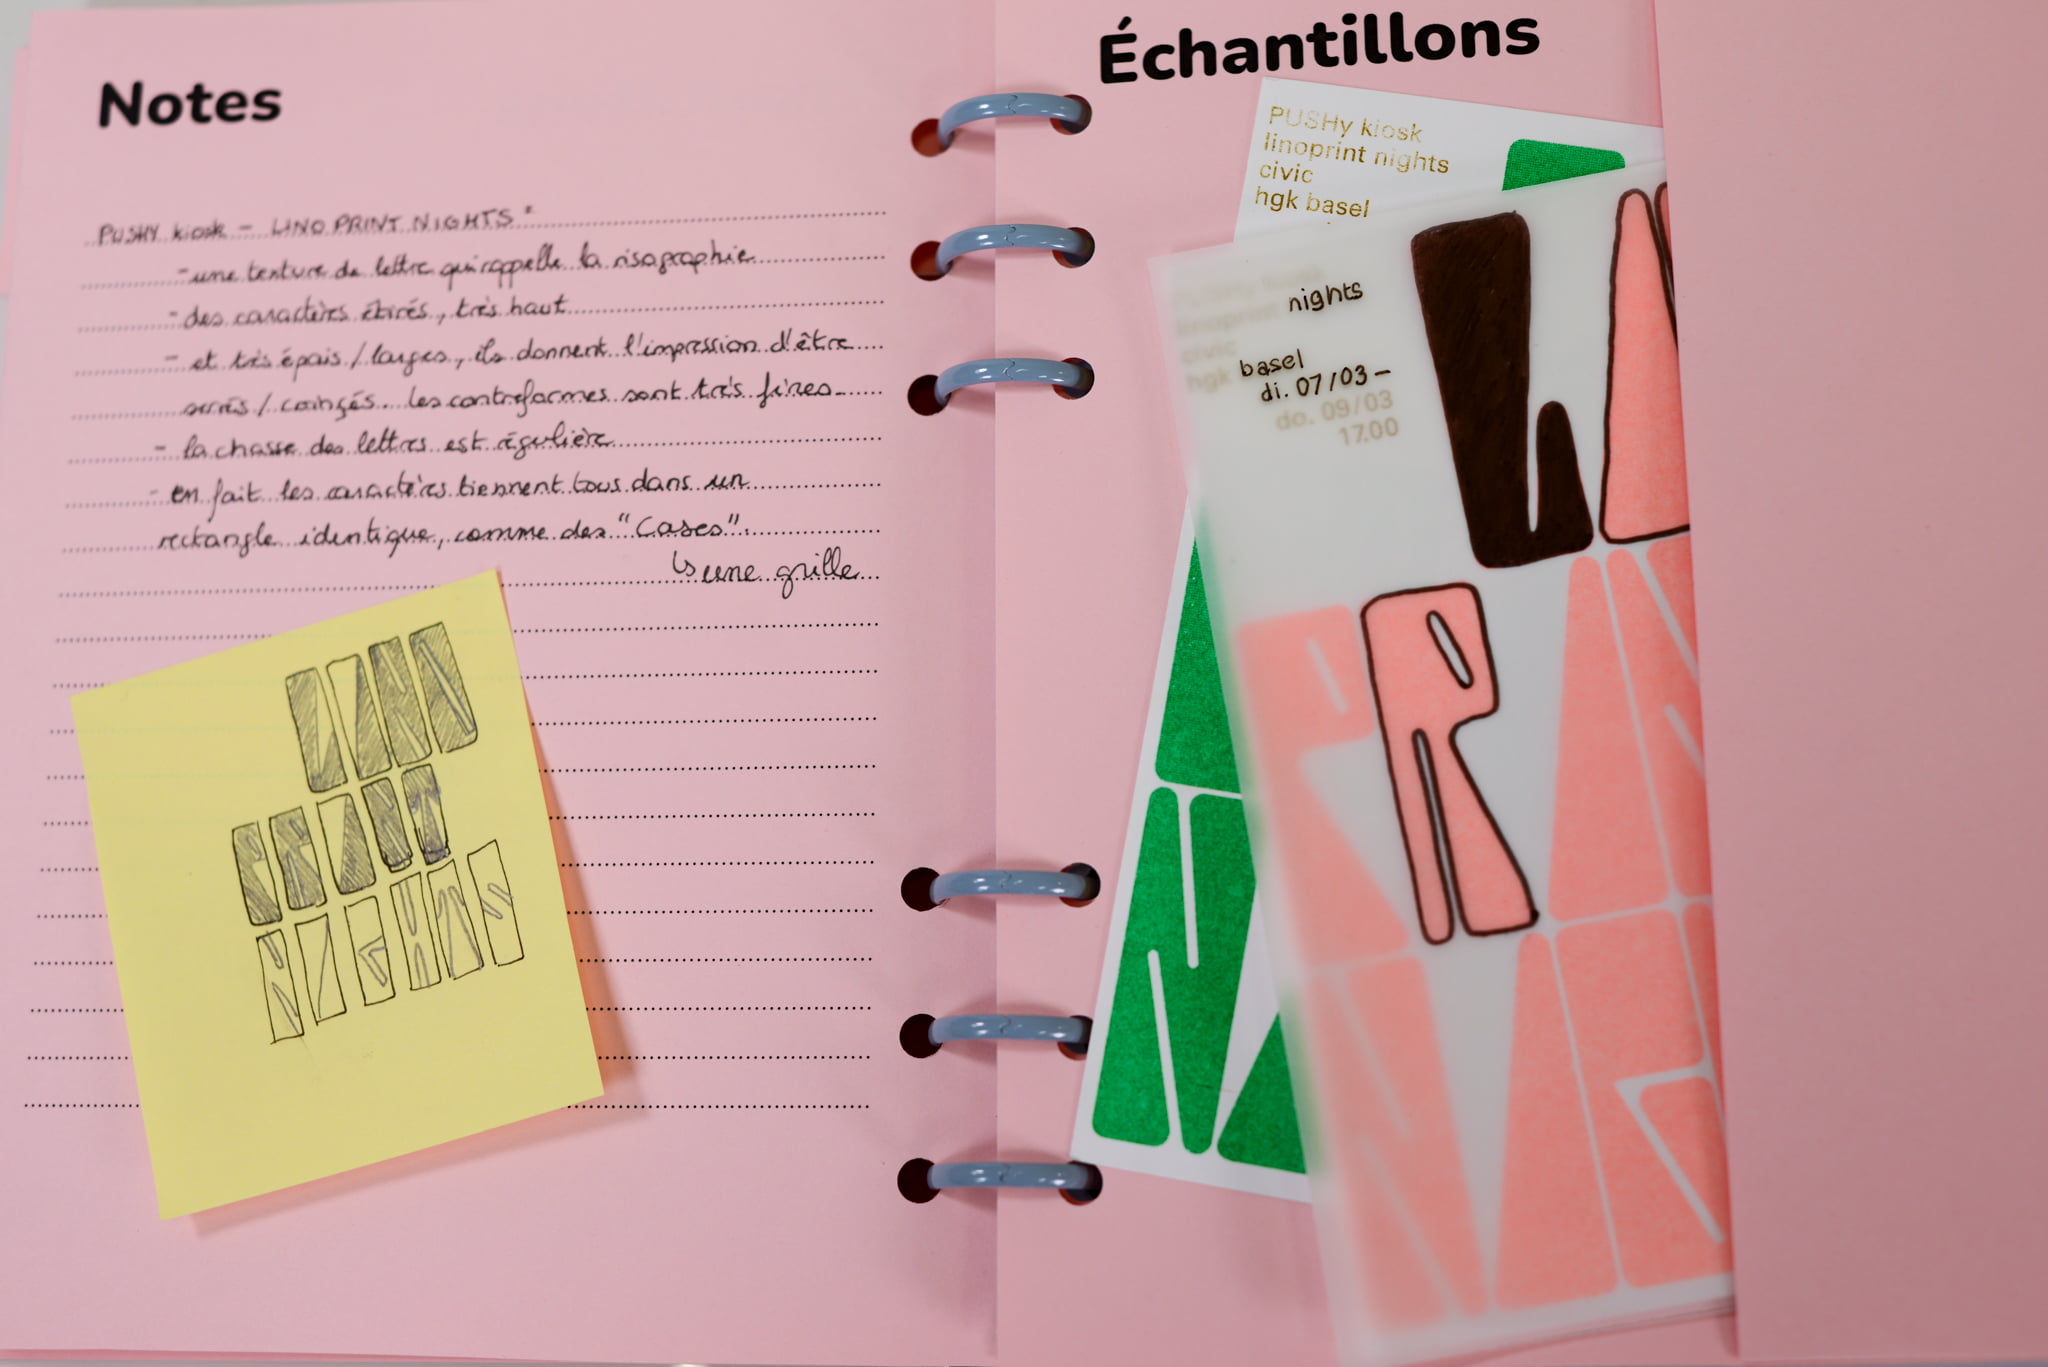 Notes
PUSHY kiosk – LINO PRINT NIGHTS"
- une texture de lettre qui rappelle la risographie
- des caractères étirés, très haut
- et très épais / larges, ils donnent l'impression d'être
serrés / coinçés. les contreformes sont très fines
- la chasse des lettres est régulière
- en fait les caractères tiennent tous dans un
rectangle identique, comme des "Cases".
↳ une grille
LINO
PRINT
NIGHTS
Échantillons
PUSHy kiosk
linoprint nights
civic
hgk basel
linoprint nights
civic
hgk basel
di. 07/03 –
do. 09/03
17.00
L
PR